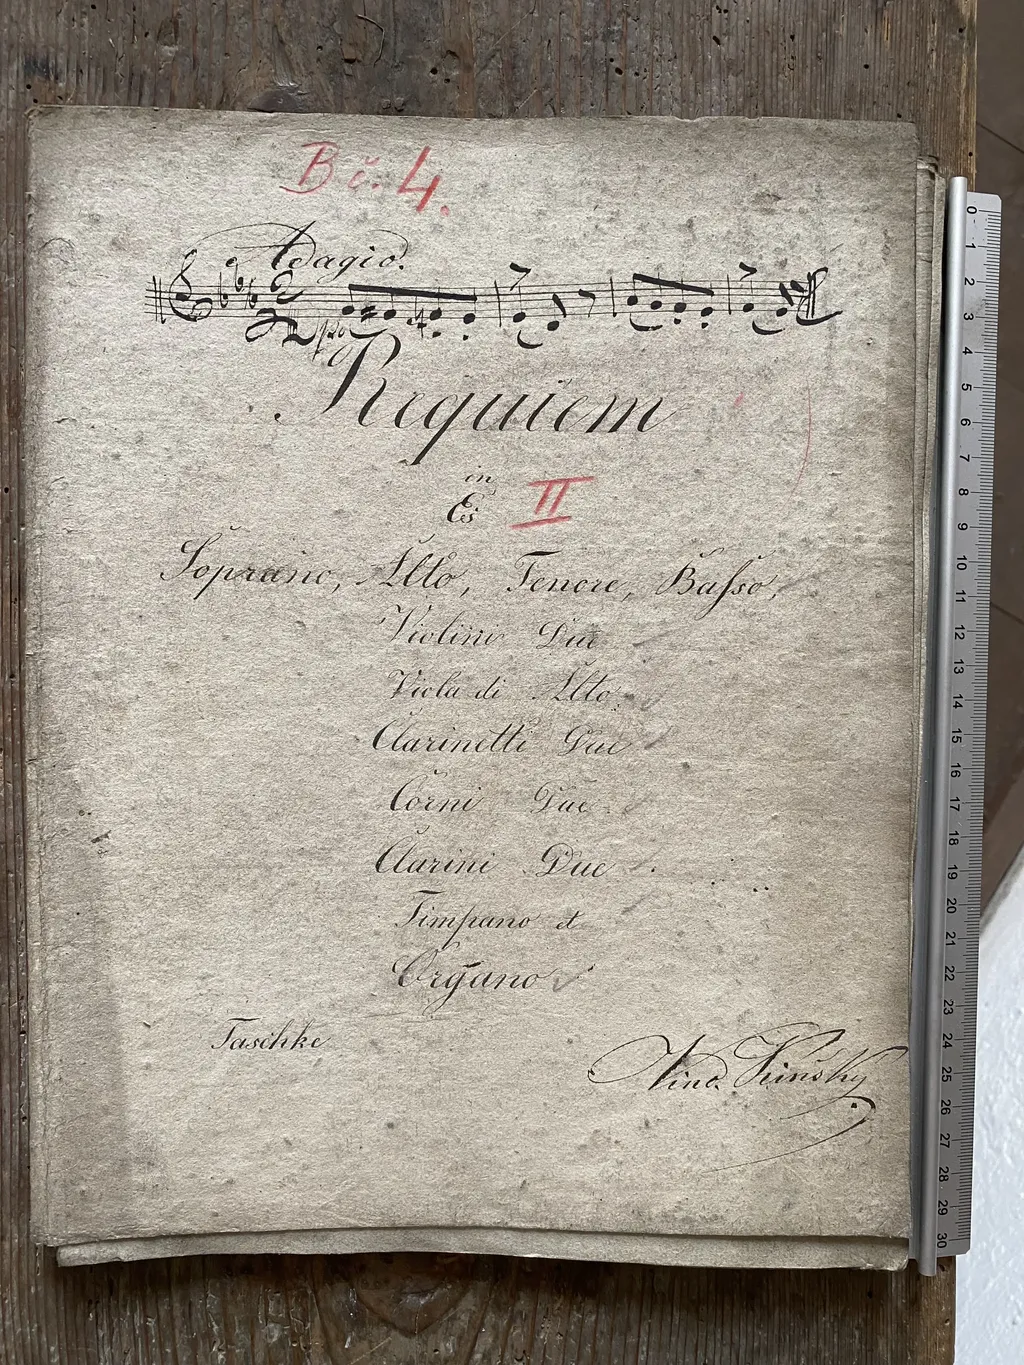 B č. 4.
Adagio.
Requiem
in
Es II
Soprano, Alto, Tenore, Baſso,
Violini Due
Viola di Alto.
Clarinetti Due
Corni Due
Clarini Due
Timpano et
Organo
Taschke
0 1 2 3 4 5 6 7 8 9 10 11 12 13 14 15 16 17 18 19 20 21 22 23 24 25 26 27 28 29 30